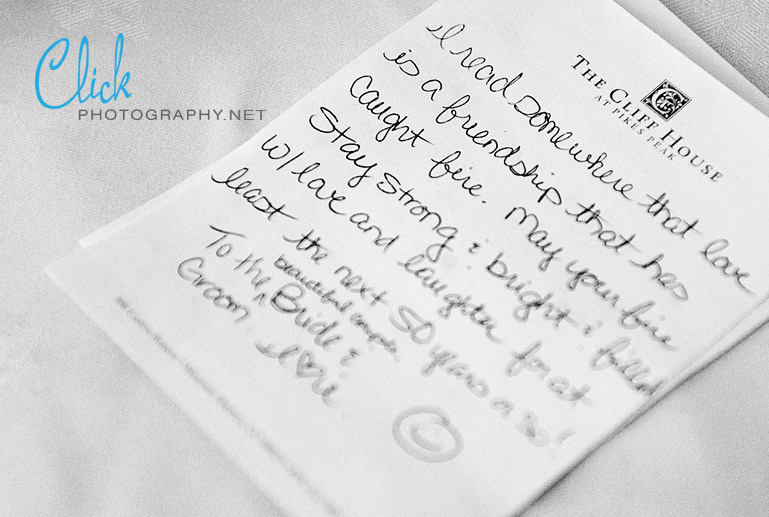 Click
PHOTOGRAPHY.NET
THE CLIFF HOUSE
AT PIKES PEAK
I read somewhere that love
is a friendship that has
caught fire. May your fire
Stay strong & bright & filled
w/ love and laughter for at
least the next 50 years or so!
To the Bride &
beautiful couple,
Groom